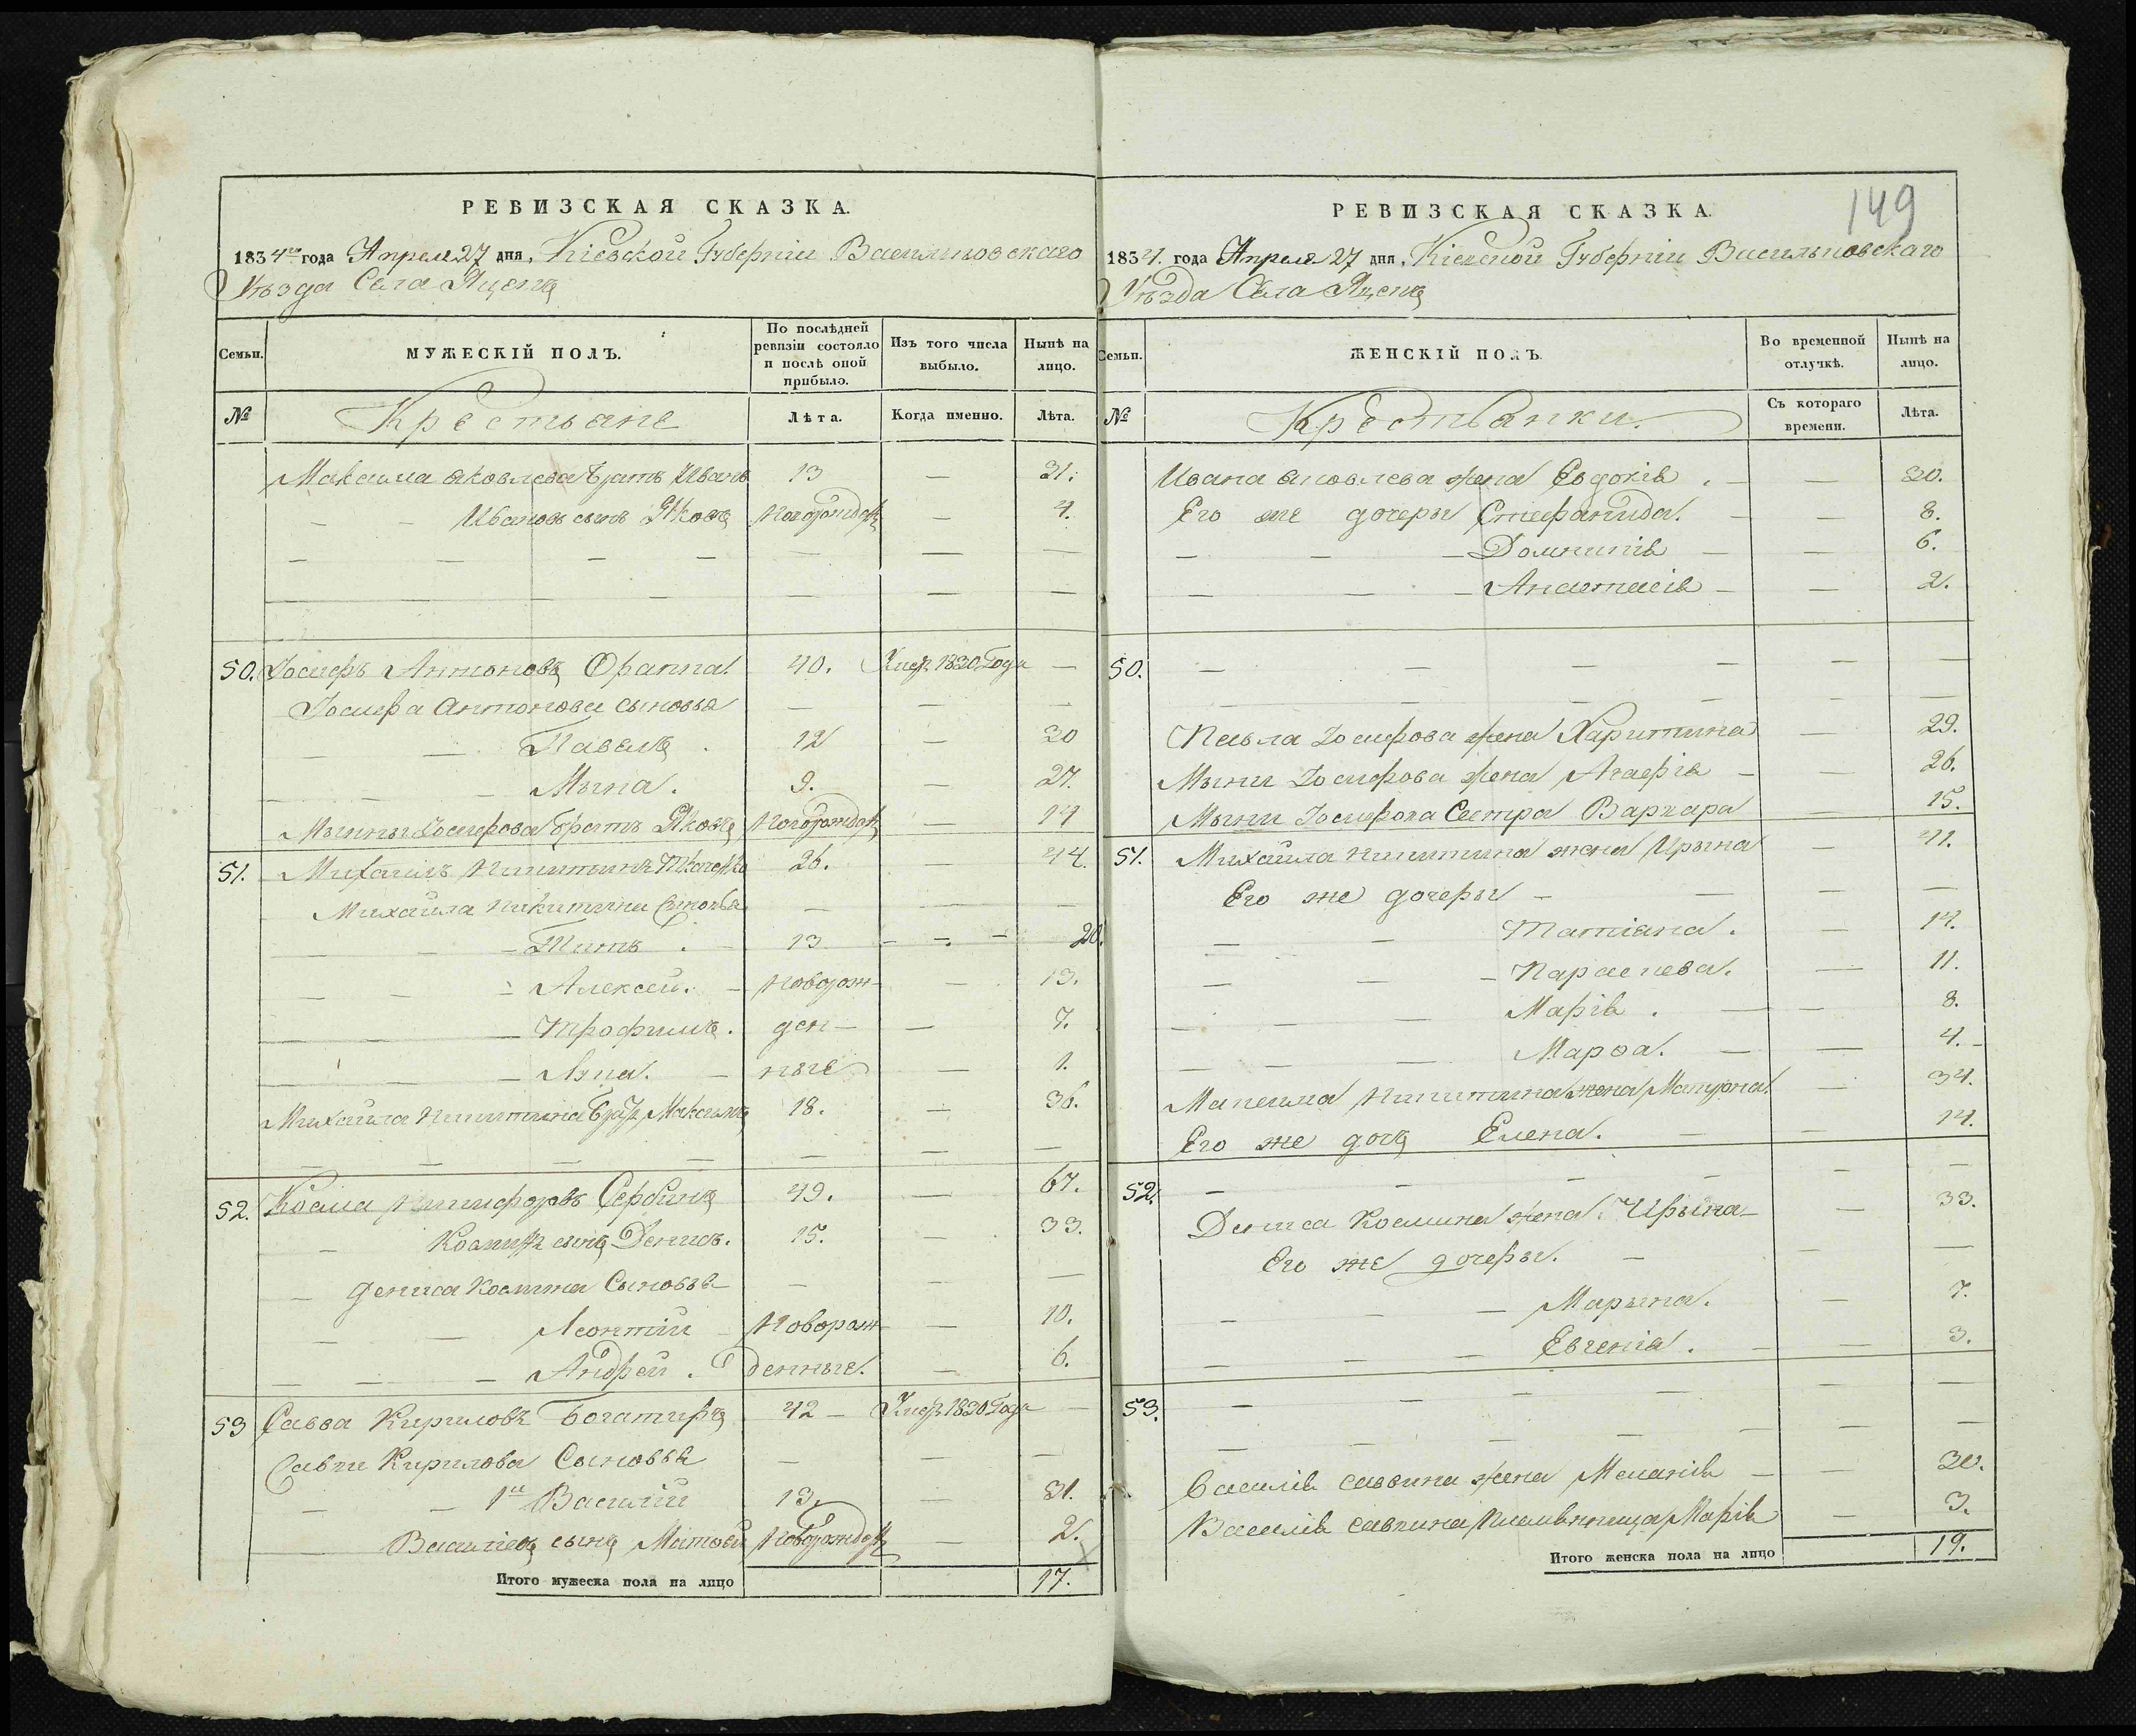 РЕВИЗСКАЯ СКАЗКА.
1834го года Апреля 27 дня, Кіевской Губерніи Васильковскаго
Уѣзда Села Яценъ
Семьи.
МУЖЕСКІЙ ПОЛЪ.
По послѣдней ревизіи состояло и послѣ оной прибыло.
Изъ того числа выбыло.
Нынѣ на лицо.
№ Крестьяне Лѣта. Когда именно. Лѣта.
Максима Яковлева братъ Иванъ 13 — 31.
— — Ивановъ сынъ Яковъ Новорожден — 4.
50. Іосифъ Антоновъ 40. Умер. 1830 Года —
Іосифа Антонова сыновья — — —
— Павелъ. 12 — 30
— Мина. 9. — 27.
Мины Іосифова братъ Яковъ Новорожден — 14
51. Михаилъ Никитинъ Ткаченко 26. — 44.
Михаила Никитина Сыновья — — —
— Титъ. 13 — 20.
— Алексей. Новорож — 13.
— Трофимъ. ден — 7.
— Лука. ные — 1.
Михаила Никитина Брат Максимъ 18. — 36.
52. Косма Никифоровъ Сербинъ 49. — 67.
— Косминъ сынъ Денисъ. 15. 33.
— Дениса Космина Сыновья — — —
— Леонтій Новорож — 10.
— Андрей. денные. — 6.
53 Савва Кириловъ Богатиръ 42 — Умер. 1830 Года —
Саввы Кирилова Сыновья — — —
— 1й Василій 13. — 31.
— Васильевъ сынъ Матвей Новорожден — 2.
Итого мужеска пола на лицо 17.
РЕВИЗСКАЯ СКАЗКА. 149
1834. года Апреля 27 дня, Кіевской Губерніи Васильковскаго
Уѣзда Села Яценъ
Семьи.
ЖЕНСКІЙ ПОЛЪ.
Во временной отлучкѣ.
Нынѣ на лицо.
№ Крестьянки. Съ котораго времени. Лѣта.
Ивана Яковлева жена Евдокія. — 30.
Его же дочеры Стефанида. — 8.
— Домникія — 6.
— Анастасія — 2.
50.
Павла Іосифова жена Харитина — 29.
Мины Іосифова жена Агафія — 26.
Мины Іосифова Сестра Варвара — 15.
51. Михайла Никитина жена Ирына — 41.
Его же дочеры — —
— Татіана. — 17.
— Параскева. — 11.
— Марія. — 8.
— Марѳа. — 4.
Максима Никитина жена Матрона. — 34.
Его же дочъ Елена. — 14.
52.
Дениса Космина жена Ирына — 33.
Его же дочеры. — —
— Марына. — 7.
— Евгенія. — 3.
53.
Василія Саввина жена Меланія — 30.
Василія Саввина Племянница Марія — 3.
Итого женска пола на лицо 19.